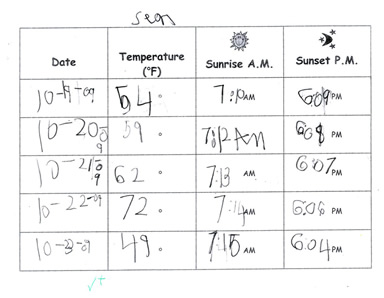 Sean
Date Temperature (°F) Sunrise A.M. Sunset P.M.
10-19-09 54° 7:10 AM 6:09 PM
10-20-09 59° 7:12 AM 6:08 PM
10-21-09 62° 7:13 AM 6:07 PM
10-22-09 72° 7:14 AM 6:06 PM
10-23-09 49° 7:15 AM 6:04 PM
√+